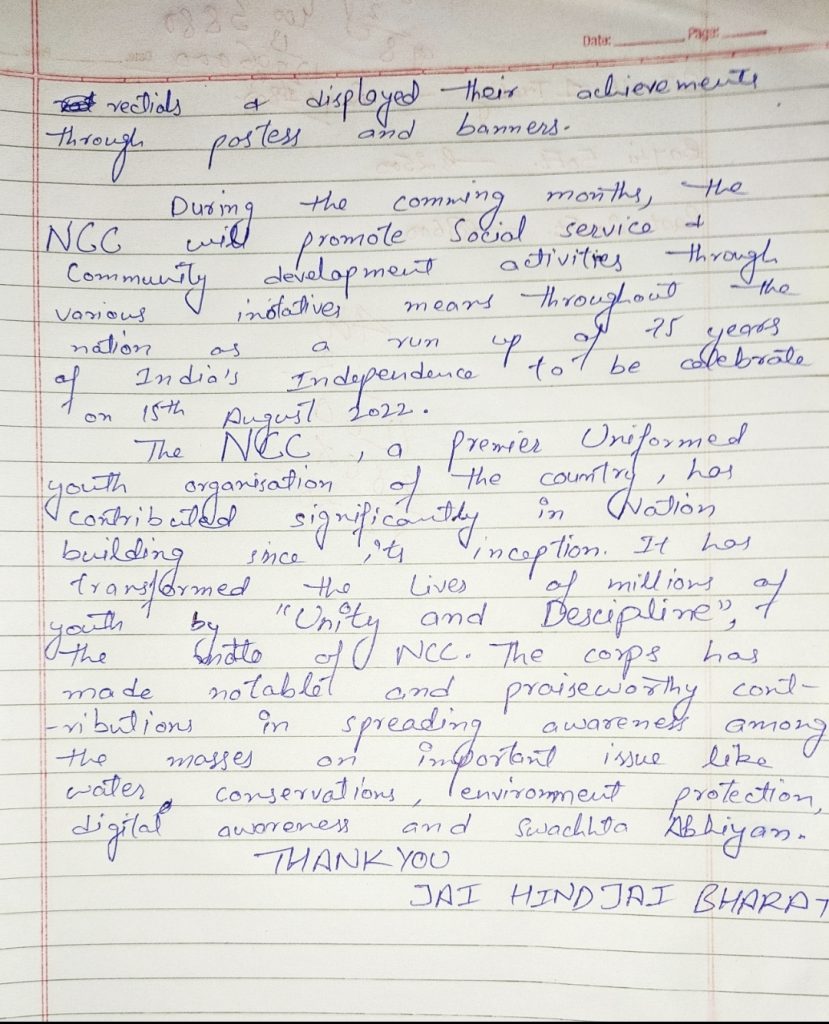 Date: Page:
rectials & displayed their achievements
through postess and banners.
During the comming months, the
NCC will promote Social service &
Community development activities through
various inotatives means throughout the
nation as a run up of 75 years
of India's Independence to be celebrate
on 15th August 2022.
The NCC, a premier Uniformed
youth organisation of the country, has
contributed significantly in Nation
building since its inception. It has
transformed the Lives of millions of
youth by "Unity and Descipline",
the motto of NCC. The corps has
made notablet and praiseworthy cont-
-ributions in spreading awareness among
the masses on important issue like
water, conservations, environment protection,
digital awareness and Swachhta Abhiyan.
THANK YOU
JAI HIND JAI BHARAT